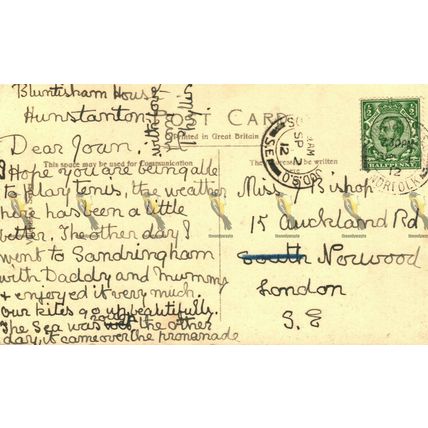 Bluntisham House
Hunstanton
with love
from
Phyllis
POST CARD
Printed in Great Britain
This space may be used for Communication
be written
Dear Joan.
I Hope you are being able
to play tenis, the weather
here has been a little
better. The other day I
went to Sandringham
with Daddy and mummy
+ enjoyed it very much.
our kites go up beautifully.
The Sea was the other
day, it came over the pronanade
Miss Bishop
15 Auckland Rd
South Norwood
London
S.E
S.E.
SP 2
12
NORFOLK
12
HALFPENNY